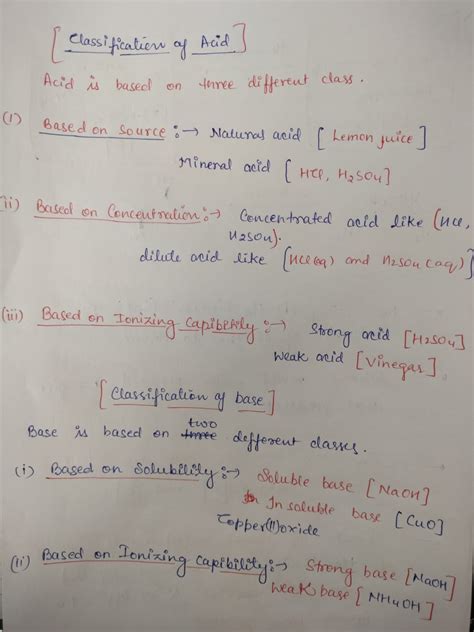 [Classification of Acid]
Acid is based on three different class.
(i) Based on Source :→ Natural acid [Lemon juice]
Mineral acid [HCl, H2SO4]
ii) Based on Concentration :→ Concentrated acid like (HCl,
H2SO4).
dilute acid like [HCl(aq) and H2SO4(aq)]
(iii) Based on Ionizing Capibility :→ Strong acid [H2SO4]
Weak acid [Vinegar]
[Classification of base]
two
Base is based on three different classes.
(i) Based on Solubility :→ Soluble base [NaOH]
In soluble base [CuO]
Copper(II)oxide
(ii) Based on Ionizing Capibility :→ Strong base [NaOH]
Weak base [NH4OH]